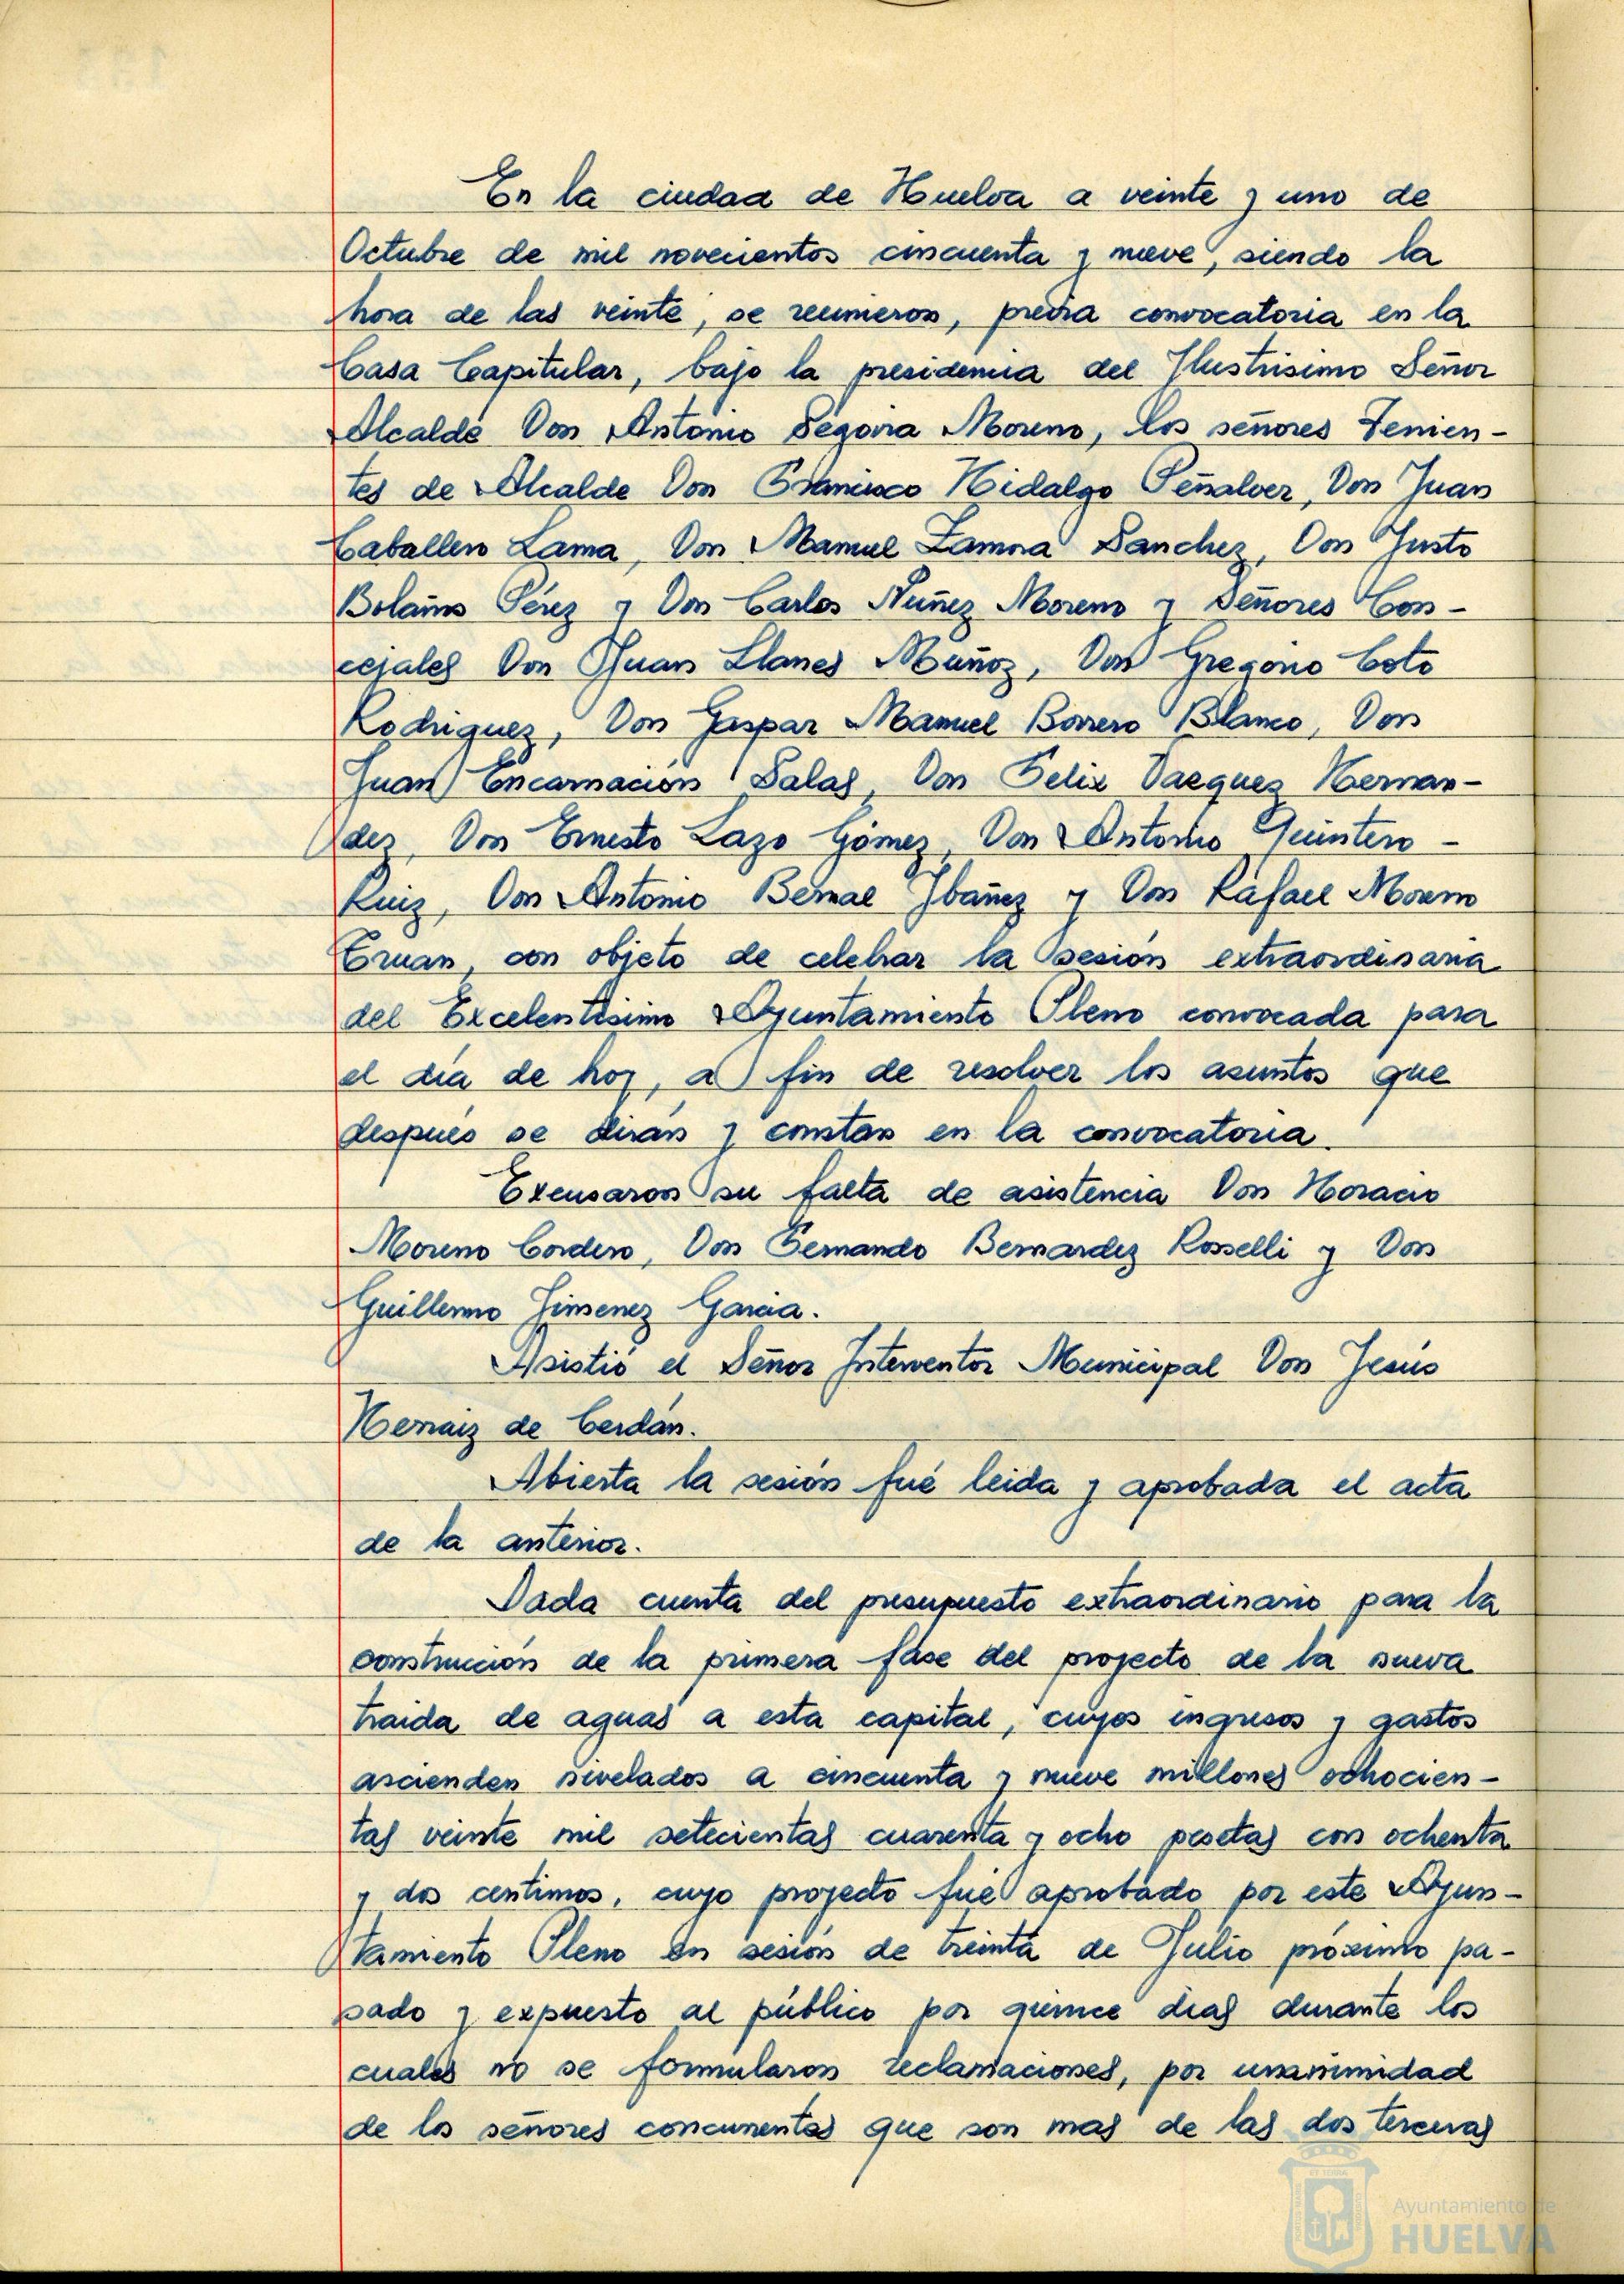 En la ciudad de Huelva a veinte y uno de
Octubre de mil novecientos cincuenta y nueve, siendo la
hora de las veinte, se reunieron, previa convocatoria en la
Casa Capitular, bajo la presidencia del Ilustrisimo Señor
Alcalde Don Antonio Segovia Moreno, los señores Tenien-
tes de Alcalde Don Francisco Hidalgo Peñalver, Don Juan
Caballero Lama, Don Manuel Zamora Sanchez, Don Justo
Bolaños Pérez y Don Carlos Nuñez Moreno y Señores Con-
cejales Don Juan Llanes Muñoz, Don Gregorio Coto
Rodriguez, Don Gaspar Manuel Borrero Blanco, Don
Juan Encarnación Salas, Don Felix Vazquez Hernan-
dez, Don Ernesto Lazo Gómez, Don Antonio Quintero -
Ruiz, Don Antonio Bernal Ibañez y Don Rafael Moreno
Truan, con objeto de celebrar la sesión extraordinaria
del Excelentisimo Ayuntamiento Pleno convocada para
el día de hoy, a fin de resolver los asuntos que
después se dirán y constan en la convocatoria.
Excusaron su falta de asistencia Don Horacio
Moreno Cordero, Don Fernando Bernardez Rosselli y Don
Guillermo Jimenez Garcia.
Asistió el Señor Interventor Municipal Don Jesús
Hernaiz de Cerdán.
Abierta la sesión fué leida y aprobada el acta
de la anterior.
Dada cuenta del presupuesto extraordinario para la
construcción de la primera fase del proyecto de la nueva
traida de aguas a esta capital, cuyos ingresos y gastos
ascienden nivelados a cincuenta y nueve millones ochocien-
tas veinte mil setecientas cuarenta y ocho pesetas con ochenta
y dos centimos, cuyo proyecto fué aprobado por este Ayun-
tamiento Pleno en sesión de treinta de Julio próximo pa-
sado y expuesto al público por quince dias durante los
cuales no se formularon reclamaciones, por unanimidad
de los señores concurrentes que son mas de las dos terceras
Ayuntamiento de
HUELVA